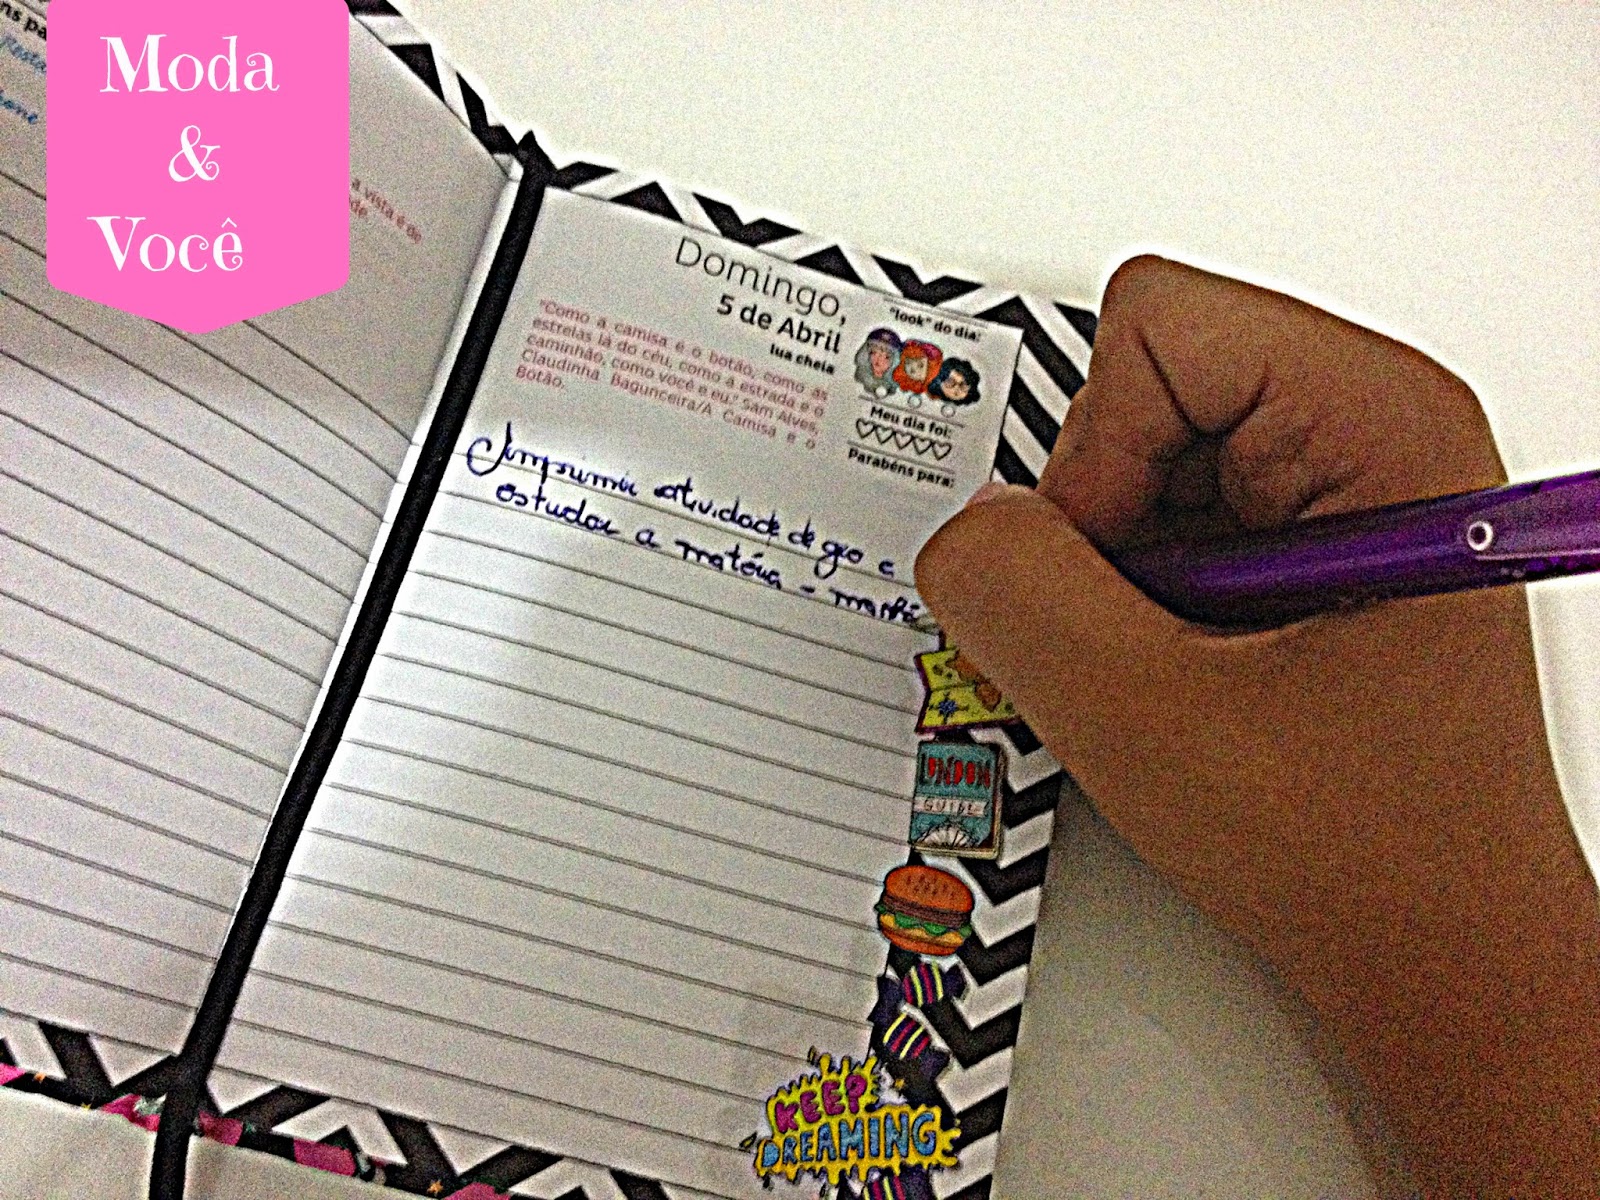 Moda
&
Você
ns pa
a vista é do
de.
Domingo,
5 de Abril
lua cheia
"Como a camisa é o botão, como as
estrelas lá do céu, como a estrada e o
caminhão, como você e eu." Sam Alves,
Claudinha Bagunceira/A Camisa e o
Botão.
"look" do dia:
Meu dia foi:
Parabéns para:
Imprimir atividade de geo e
estudar a matéria - manhã
LONDON
GUIDE
KEEP
DREAMING